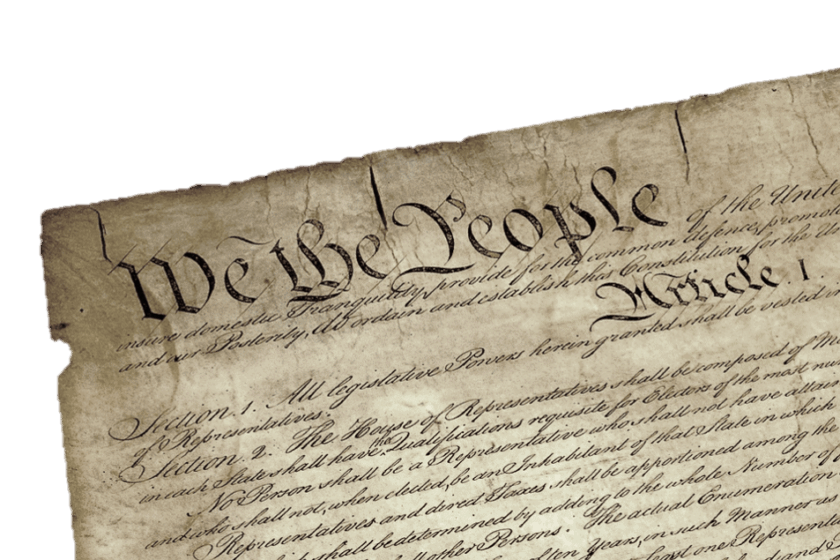 We the People of the Unite
insure domestic Tranquility, provide for the common defence, promo
and our Posterity, do ordain and establish this Constitution for the Un
Article. I.
Section. 1. All legislative Powers herein granted shall be vested in
of Representatives.
Section. 2. The House of Representatives shall be composed of M
in each State shall have the Qualifications requisite for Electors of the most num
No Person shall be a Representative who shall not have attain
and who shall not, when elected, be an Inhabitant of that State in which
Representatives and direct Taxes shall be apportioned among the
shall be determined by adding to the whole Number of
all other Persons. The actual Enumeration
of ten Years, in such Manner as
least one Represen